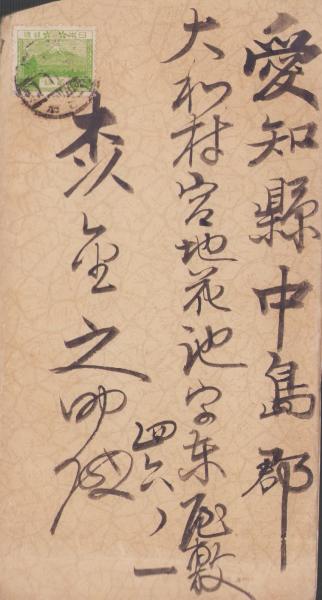 愛知縣中島郡
大和村宮地花池字東屋敷
四六ノ一
金之助殿